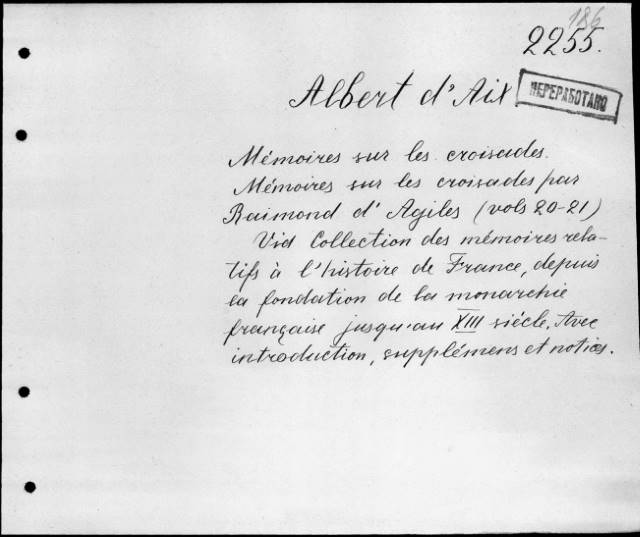 186
2255.
Albert d'Aix
ПЕРЕРАБОТАНО
Mémoires sur les croisades.
Mémoires sur les croisades par
Raimond d'Agiles (vols 20-21)
Vid Collection des mémoires rela-
tifs à l'histoire de France, depuis
la fondation de la monarchie
française jusqu'au XIII siécle. Avec
introduction, supplémens et notices.